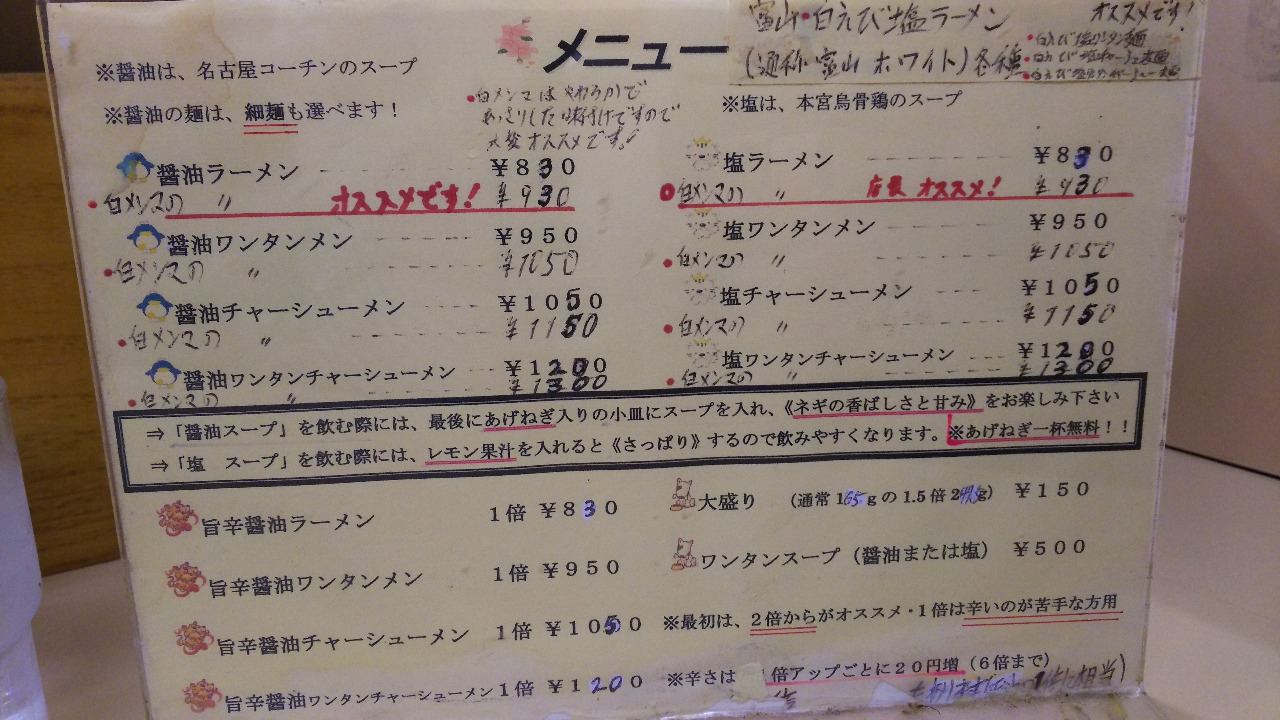 メニュー
富山・白えび塩ラーメン オススメです!
(通称 富山 ホワイト) 各種
・白えび塩ワンタン麺
※醤油は、名古屋コーチンのスープ
※醤油の麺は、細麺も選べます!
・白メンマは やわらかで
あっさりした味付けですので
大変オススメです!
※塩は、本宮烏骨鶏のスープ
醤油ラーメン ¥830
・白メンマの 〃 オススメです! ¥930
醤油ワンタンメン ¥950
・白メンマの 〃 ¥1050
醤油チャーシューメン ¥1050
・白メンマの 〃 ¥1150
醤油ワンタンチャーシューメン ¥1200
・白メンマの 〃 ¥1300
塩ラーメン ¥830
白メンマの 〃 店長 オススメ! ¥930
塩ワンタンメン ¥950
・白メンマの 〃 ¥1050
塩チャーシューメン ¥1050
・白メンマの 〃 ¥1150
塩ワンタンチャーシューメン ¥1200
・白メンマの 〃 ¥1300
⇒「醤油スープ」を飲む際には、最後にあげねぎ入りの小皿にスープを入れ、《ネギの香ばしさと甘み》をお楽しみ下さい
⇒「塩 スープ」を飲む際には、レモン果汁を入れると《さっぱり》するので飲みやすくなります。※あげねぎ一杯無料!!
旨辛醤油ラーメン 1倍 ¥830
旨辛醤油ワンタンメン 1倍 ¥950
旨辛醤油チャーシューメン 1倍 ¥1050
旨辛醤油ワンタンチャーシューメン 1倍 ¥1200
大盛り (通常165gの1.5倍 g) ¥150
ワンタンスープ(醤油または塩) ¥500
※最初は、2倍からがオススメ・1倍は辛いのが苦手な方用
※辛さは 1倍アップごとに20円増(6倍まで)
相当)